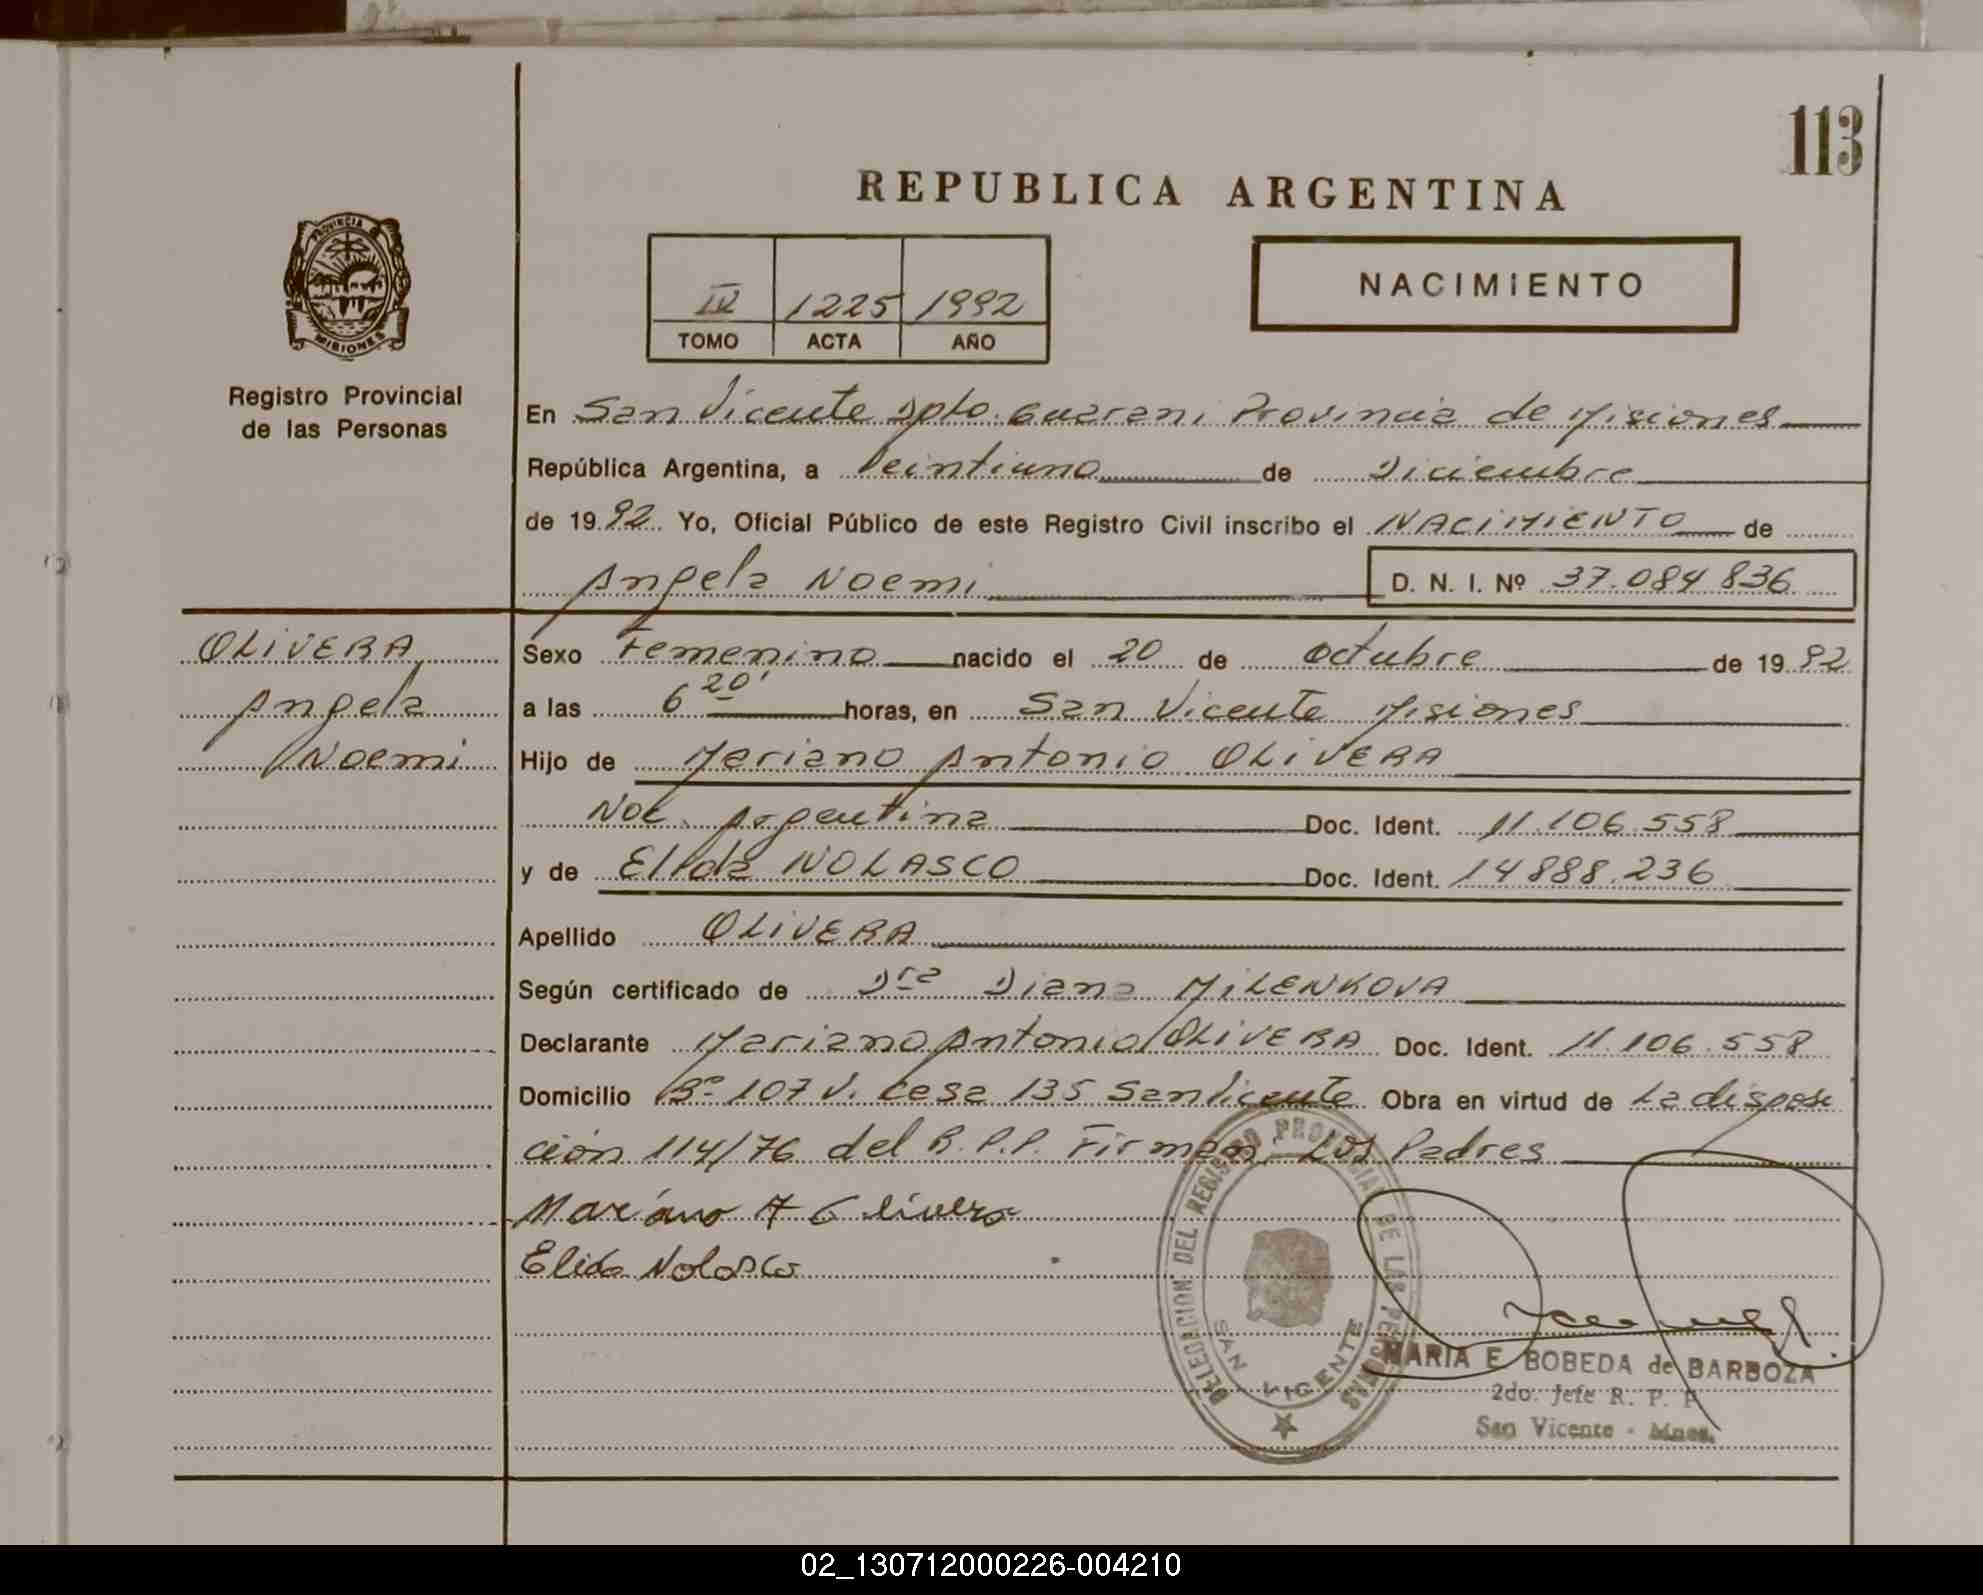 113
REPUBLICA ARGENTINA
PROVINCIA DE
MISIONES
Registro Provincial
de las Personas
IV 1225 1992
TOMO ACTA AÑO
NACIMIENTO
En San Vicente Dpto. Guarani Provincia de Misiones
República Argentina, a Veintiuno de Diciembre
de 1992 Yo, Oficial Público de este Registro Civil inscribo el NACIMIENTO de
Angela Noemi D. N. I. Nº 37.084.836
OLIVERA
Angela
Noemi
Sexo Femenino nacido el 20 de Octubre de 1992
a las 6 20' horas, en San Vicente Misiones
Hijo de Mariano Antonio OLIVERA
Nac. Argentina Doc. Ident. 11.106.558
y de Elida NOLASCO Doc. Ident. 14888.236
Apellido OLIVERA
Según certificado de Dra Diana MILENKOVA
Declarante Mariano Antonio OLIVERA Doc. Ident. 11.106.558
Domicilio Bº 107 V. casa 135 San Vicente Obra en virtud de La disposi
ción 114/76 del R.P.P. Firman Los Padres
Mariano A Olivera
Elida Nolasco
DELEGACION DEL REGISTRO PROVINCIAL DE LAS PERSONAS
SAN VICENTE
MARIA E. BOBEDA de BARBOZA
2do. Jefe R. P. P.
San Vicente - Mnes.
02_130712000226-004210